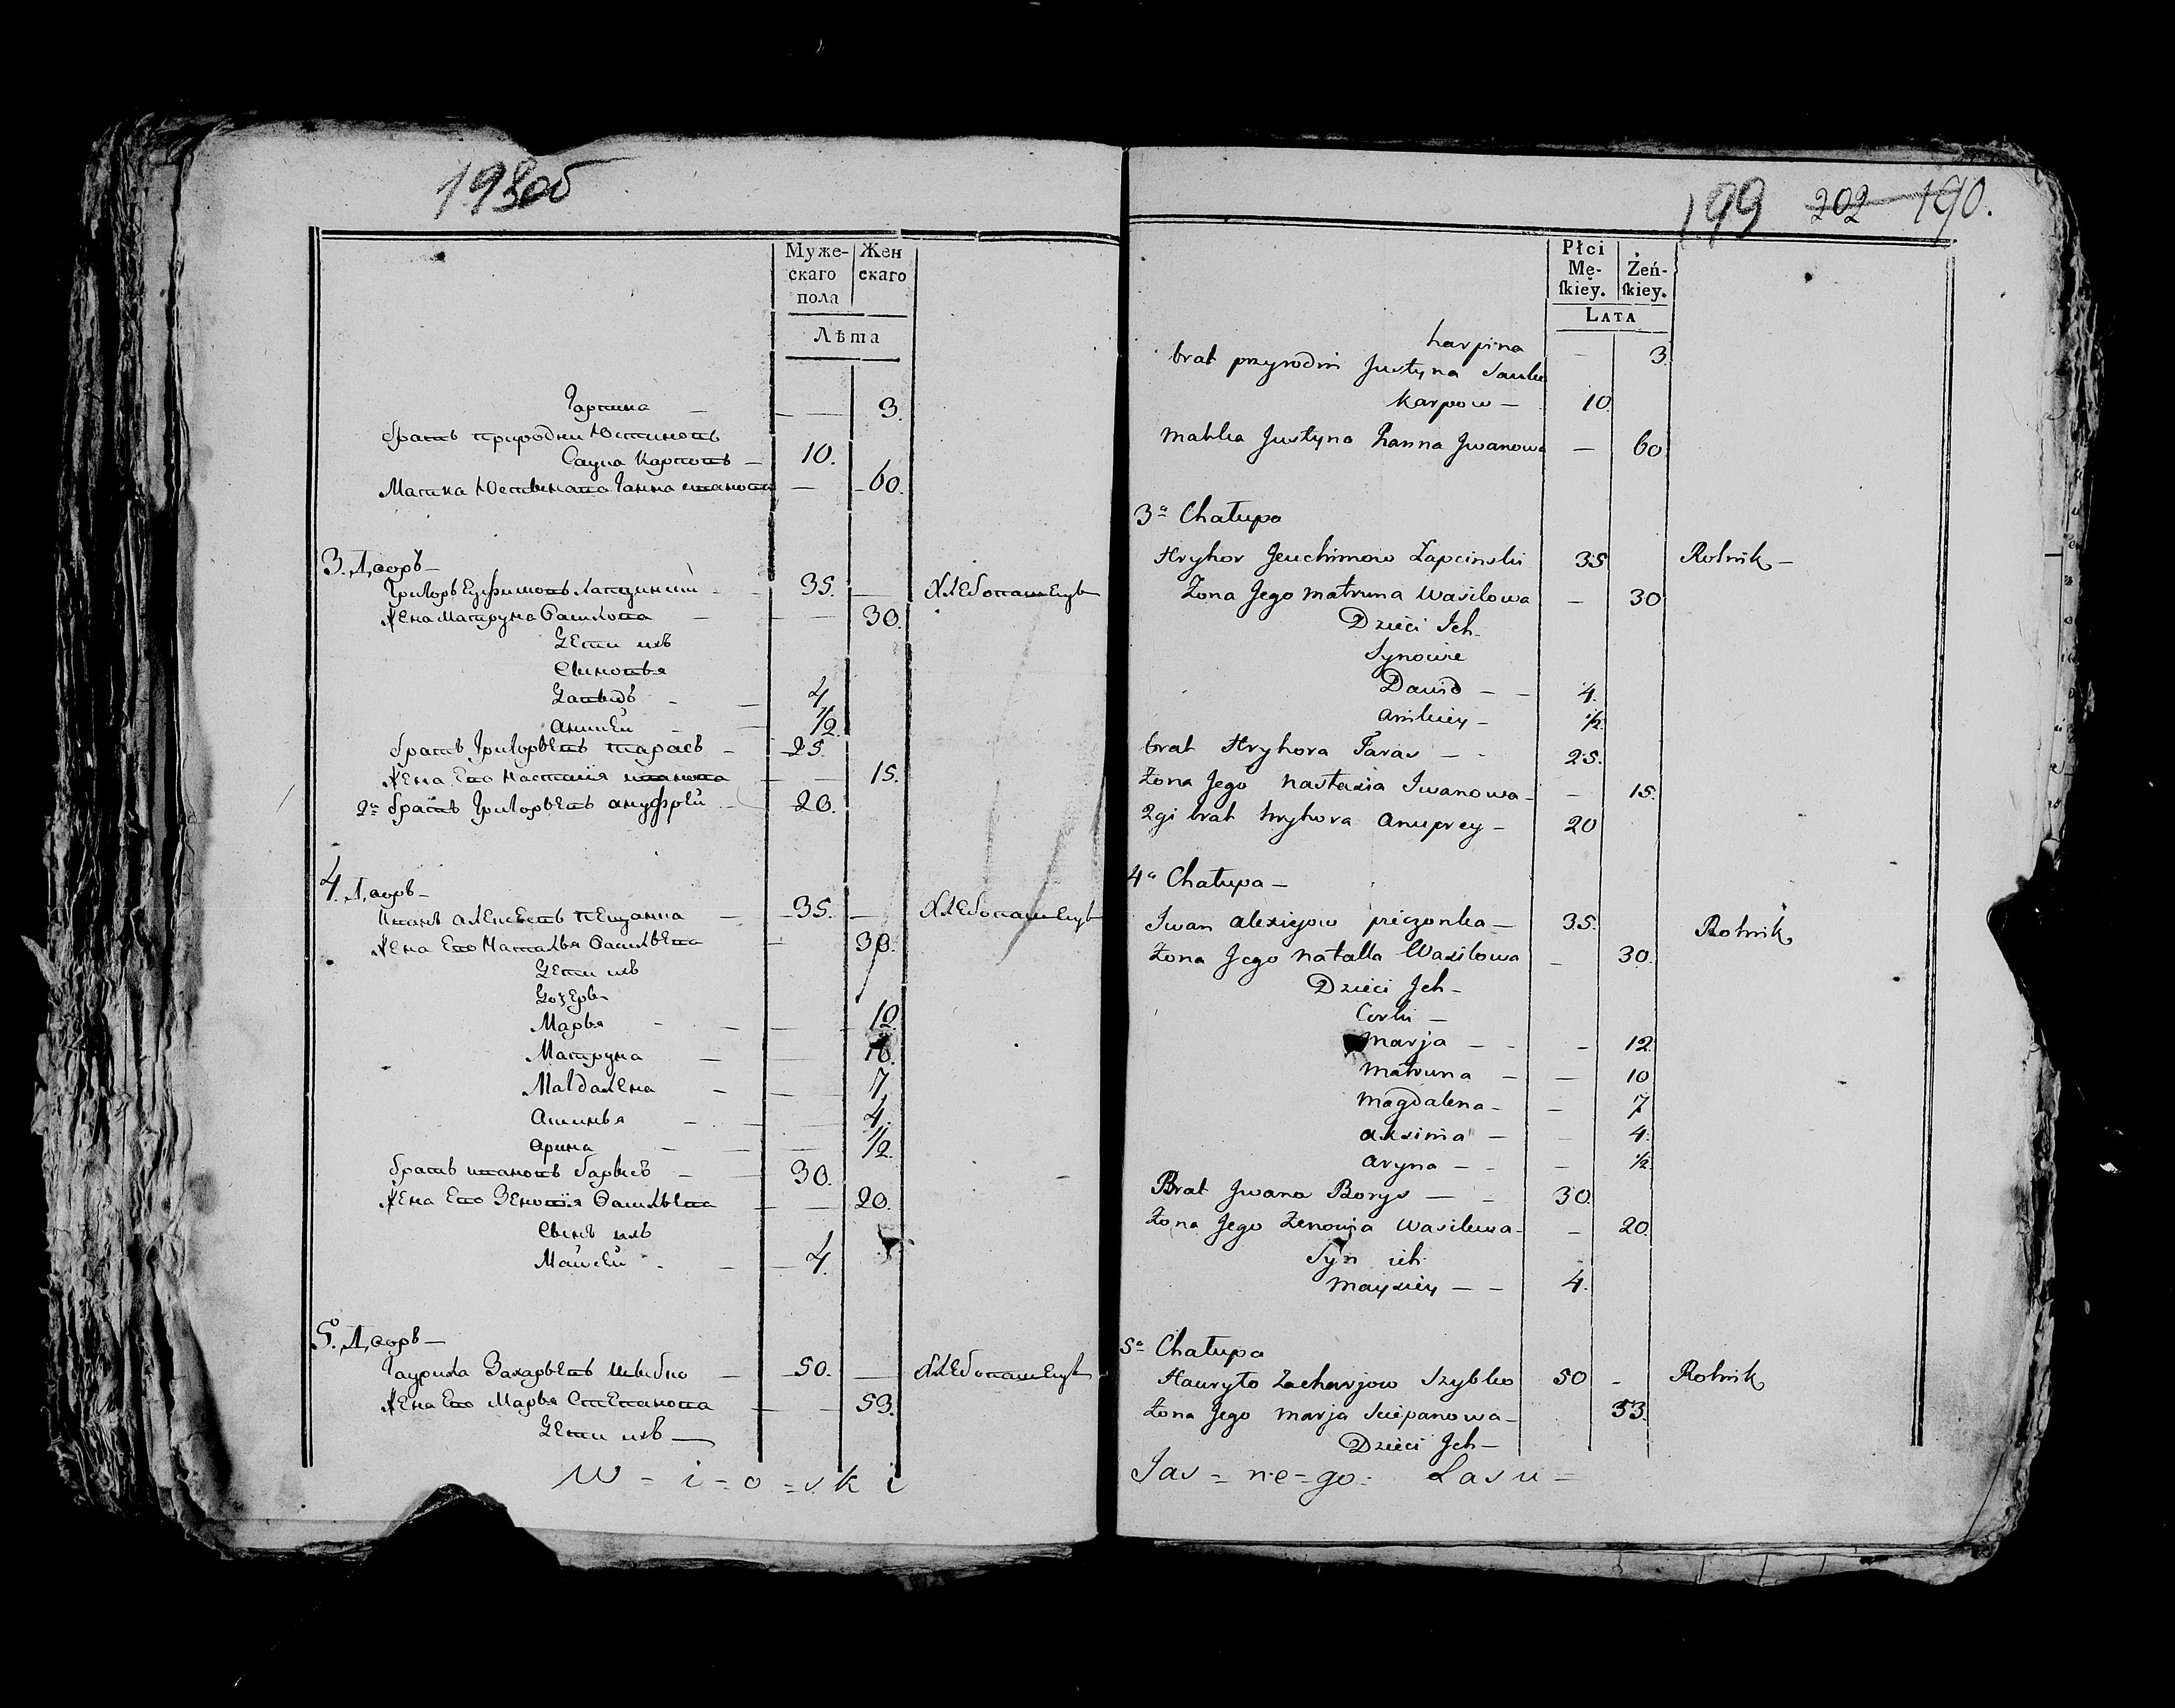 193об
Муже-
скаго
пола
Жен
скаго
Лѣта
Гарпина — — 3.
братъ природни Юстиновъ
Саука Карповъ — 10.
Матка Юстинова Ганна иванова — 60.
3. Дворъ —
Григоръ Еухимовъ Лапцинский 35. — Хлебопашецъ
Жена Матруна Василова — — 30.
Дети ихъ
Сыновья
Давидъ — 4
Аникей — 1/2
братъ Григорьевъ тарасъ — 25.
Жена Его Настасiя иванова — — 15.
2й братъ Григорьевъ ануфрей — 20.
4. Дворъ —
Иванъ алексеевъ печанка — 35. — Хлебопашецъ
Жена Его Наталья Васильева — 30.
Дети ихъ
Дочери
Марья — — 12.
Матруна — — 10.
Магдалена — — 7
Аксинья — — 4.
Арина — — 1/2.
братъ ивановъ барысъ — 30.
Жена Его Зеновiя Васильева — — 20.
Сынъ ихъ
Майсей — 4.
5. Дворъ —
Гаурила Захарьевъ Шыбко — 50. — Хлебопашецъ
Жена Его Марья Степанова — — 53.
Дети ихъ —
W - i - o - s k i
199 202 190.
Płci
Mę-
ſkiey.
Żeń-
ſkiey.
LATA
harpina — 3.
brat przyrodni Justyna Sauka
Karpow — 10.
matka Justyna Hanna Jwanowa — 60
3a Chałupa
Hryhor Jeuchimow Łapcinski 35 Rolnik —
Zona Jego matruna Wasilowa — 30
Dzieci Jch
Synowie
Dawid — — 4.
anikiey — 1/2
brat Hryhora Taras — — 25.
Zona Jego nastazia Iwanowa — — 15.
2gi brat hryhora anuprey — 20
4a Chałupa —
Iwan alexiejow pieczonka — 35. Rolnik
Zona Jego natalla Wasilowa — 30.
Dzieci Jch —
Corki —
marja — — - 12.
matruna — — 10
magdalena — — 7
axsinia — — 4.
aryna — — — 1/2
Brat Jwana Borys — — 30.
Zona Jego Zenowia Wasilewa — — 20.
Syn ich
mayziey — — 4.
5a Chałupa
Hauryło Zacharjow Szybko 50 - Rolnik
Zona Jego marja Sciepanowa — 53.
Dzieci Jch —
Jas = ne = go = Lasu =